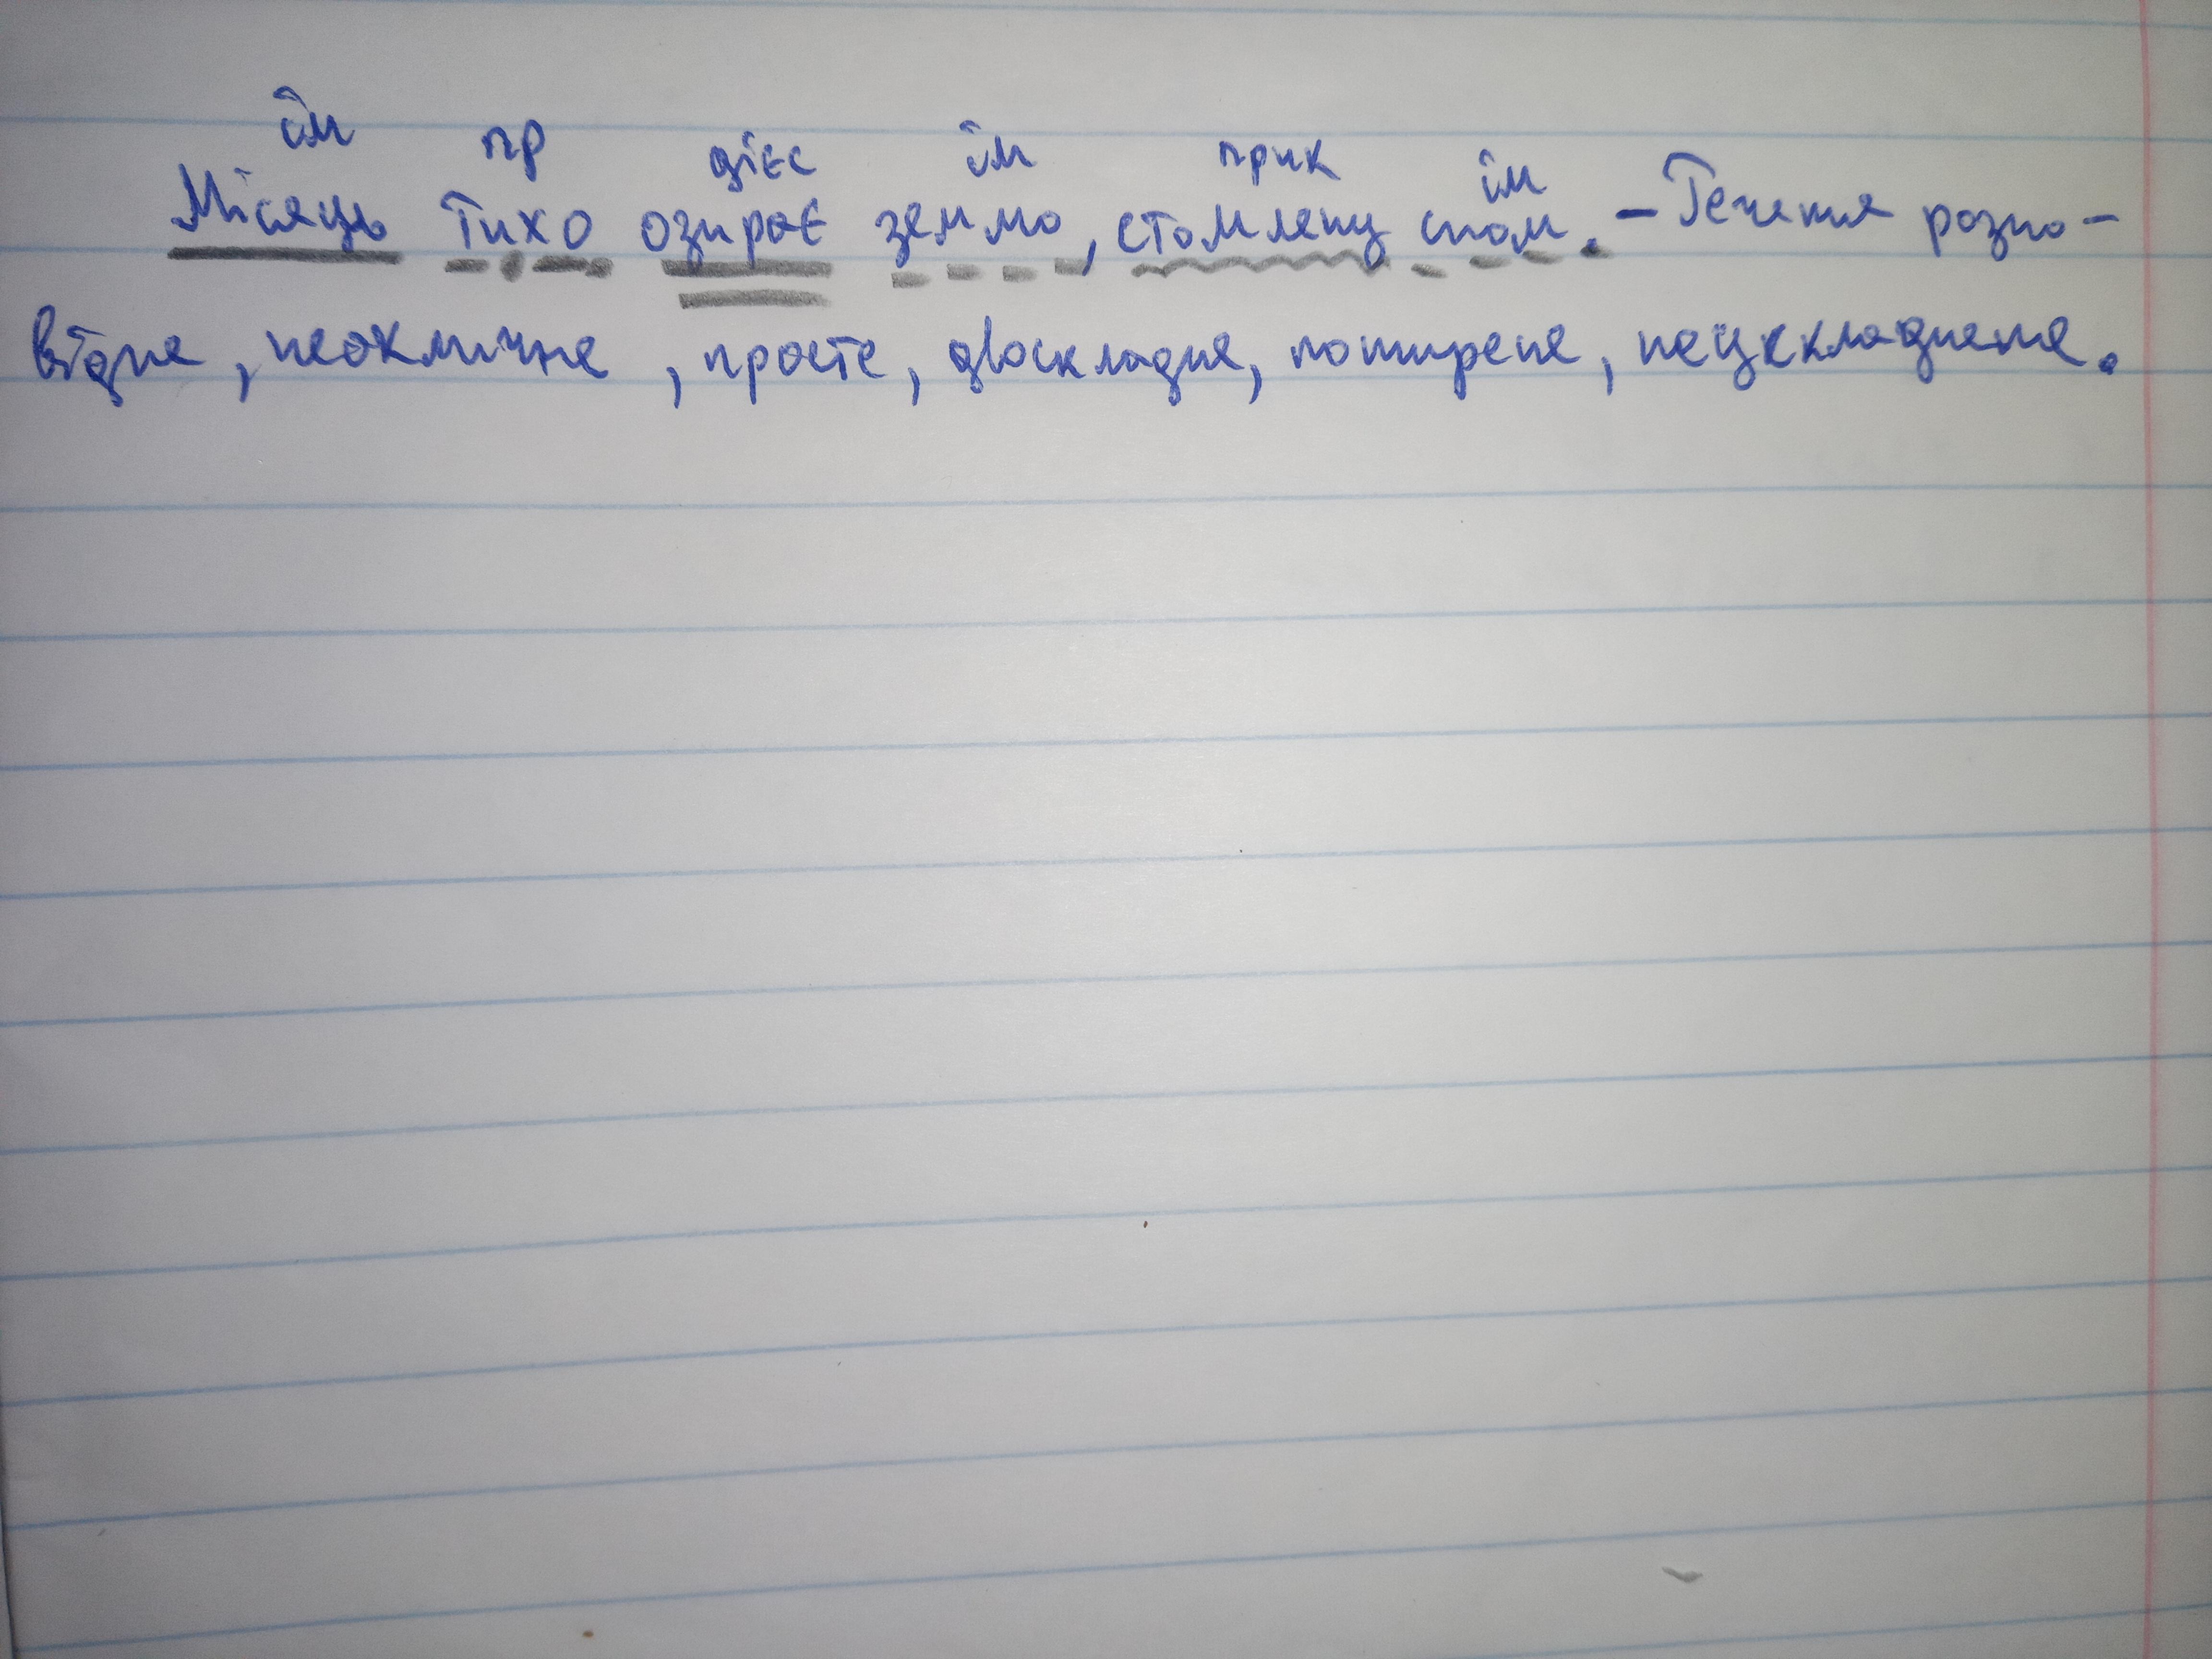 ім пр дієс ім прик ім
Місяць тихо озирає землю, стомлену сном. – Речення розпо-
відне, неокличне, просте, двоскладне, поширене, неускладнене.